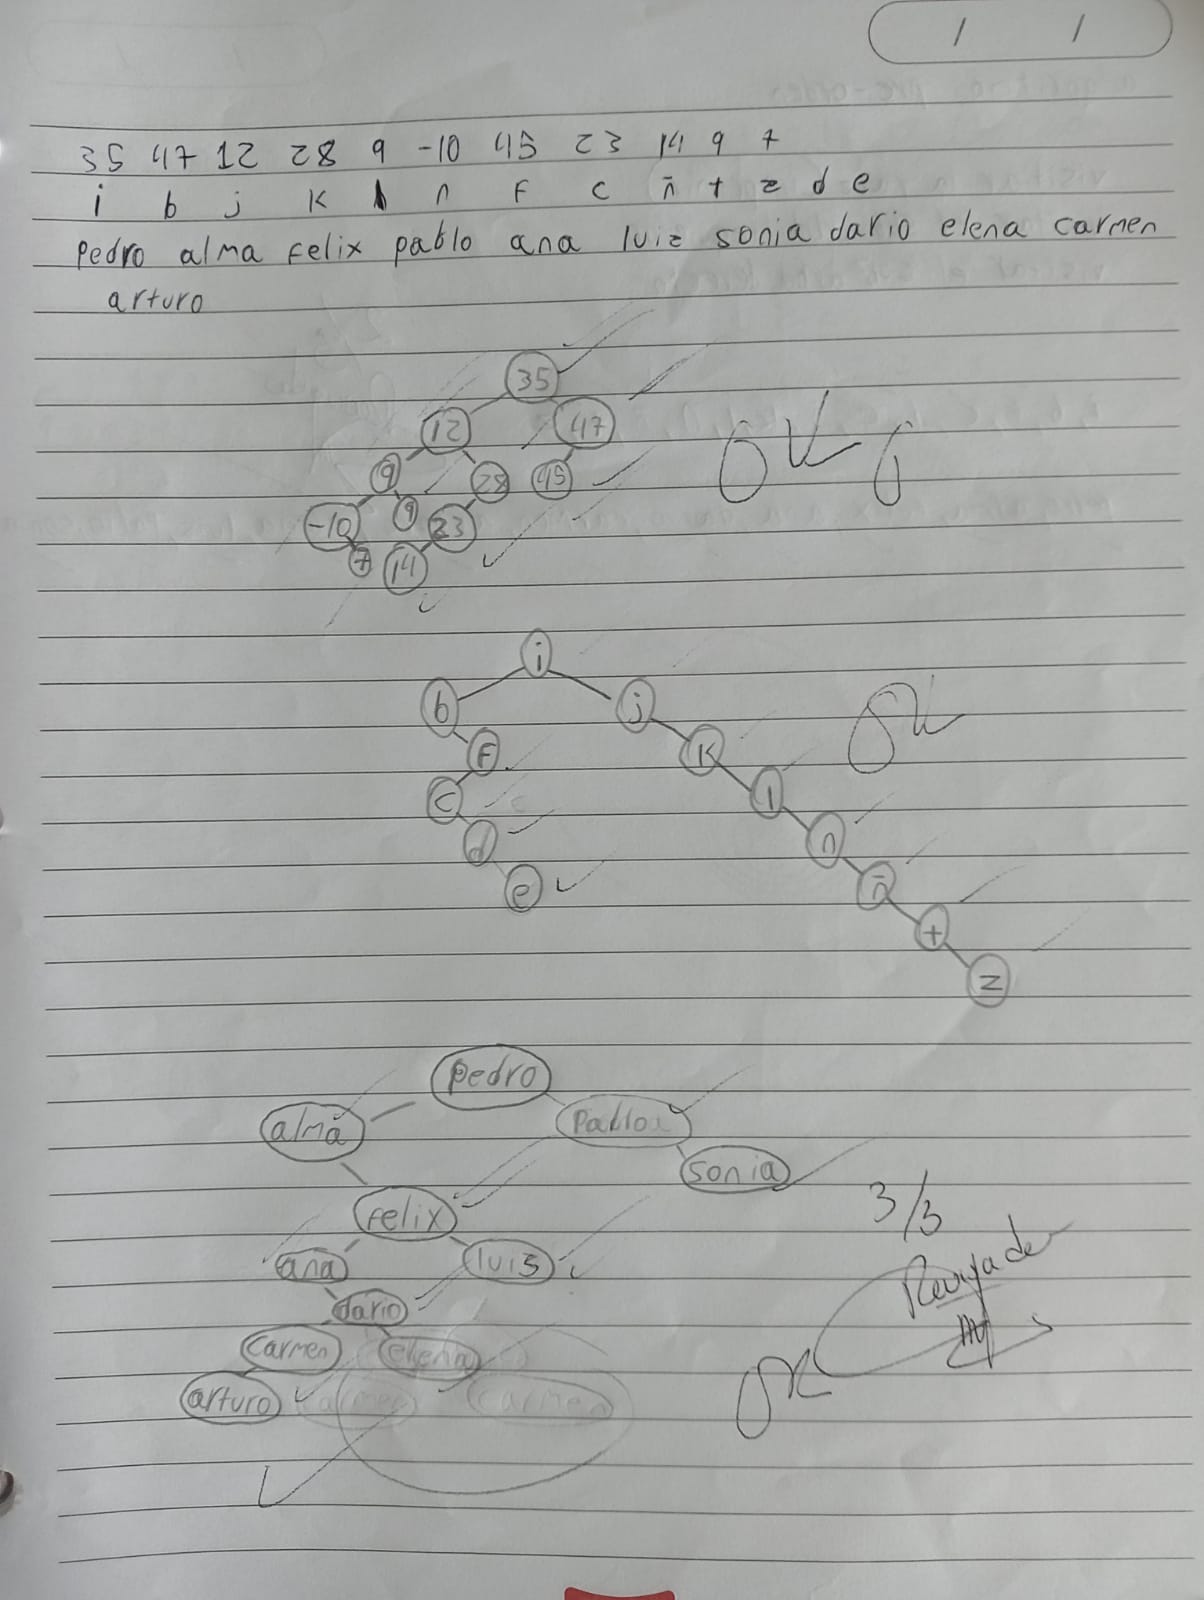 / /
35 47 12 28 9 -10 45 23 14 9 7
i b j K l n F c ñ t z d e
Pedro alma Felix pablo ana luiz sonia dario elena carmen
arturo
35
12 47
9 28 45
-10 9 23
7 14
OK
i
b j
F K
c l
d n
e ñ
t
z
OK
Pedro
alma Pablo
sonia
felix
ana luis
dario
Carmen elena
arturo carmen
3/3
OK